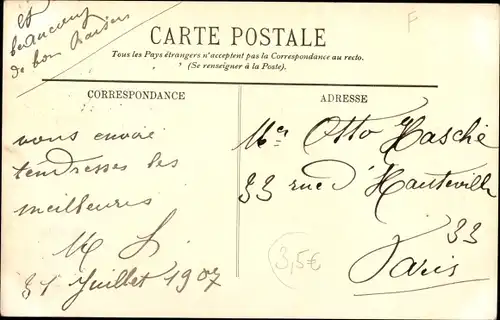 et
beaucoup
de bons baisers
F
CARTE POSTALE
Tous les Pays étrangers n'acceptent pas la Correspondance au recto.
(Se renseigner à la Poste).
CORRESPONDANCE
ADRESSE
vous envoie
tendresses les
meilleures
31 Juillet 1907
Otto Hasché
33 rue d'Hauteville
33
Paris
3,5€